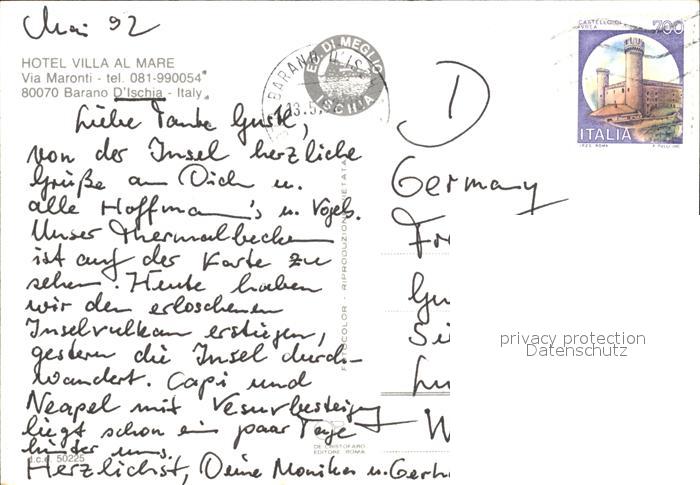 Mai 92
HOTEL VILLA AL MARE
Via Maronti - tel. 081-990054
80070 Barano D'Ischia - Italy
Liebe Tante Gustl,
von der Insel herzliche
Grüße an Dich u.
alle Hoffmann's u. Vogels.
Unser Thermalbecken
ist auf der Karte zu
sehen. Heute haben
wir den erloschenen
Inselvulkan erstiegen,
gestern die Insel durch-
wandert. Capi und
Neapel mit Vesuvbesteigung
liegt schon ein paar Tage
hinter uns.
Herzlichst, Deine Monika u. Gerh
d.c.e. 50225
BARANO D'IS
13.5
ED. DI MEGLIO
ISCHIA
FOTOCOLOR - RIPRODUZIONE VIETATA
DE CRISTOFARO
EDITORE ROMA
CASTELLO DI
IVREA
700
ITALIA
I.P.Z.S. ROMA
D
Germany
Fr
Gu
Si
Lu
W
privacy protection
Datenschutz